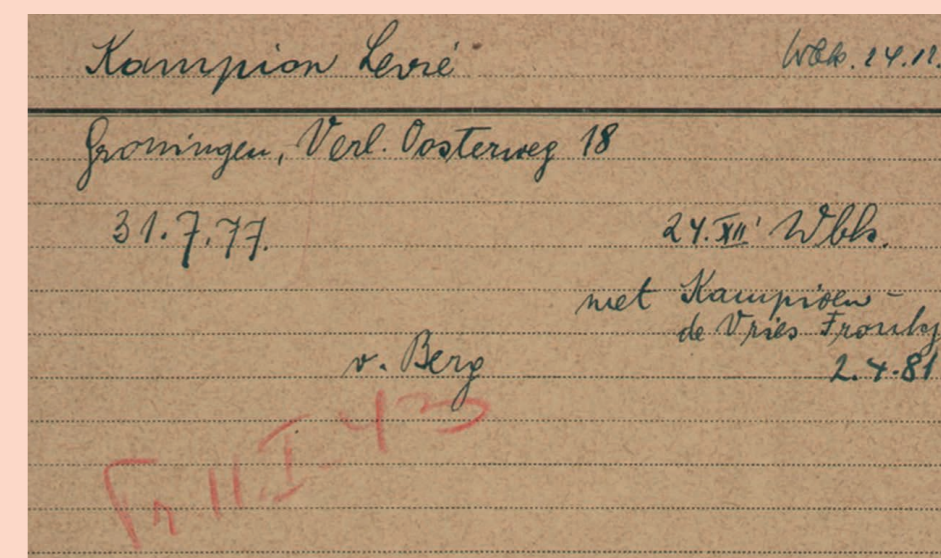 Kampion Levié Wbk. 24.12.
Groningen, Verl. Oosterweg 18
31.7.77. 24.XII' Wbk.
met Kampioen -
de Vries Frouk
v. Berg 2.4.81
Tr. 11.I.43